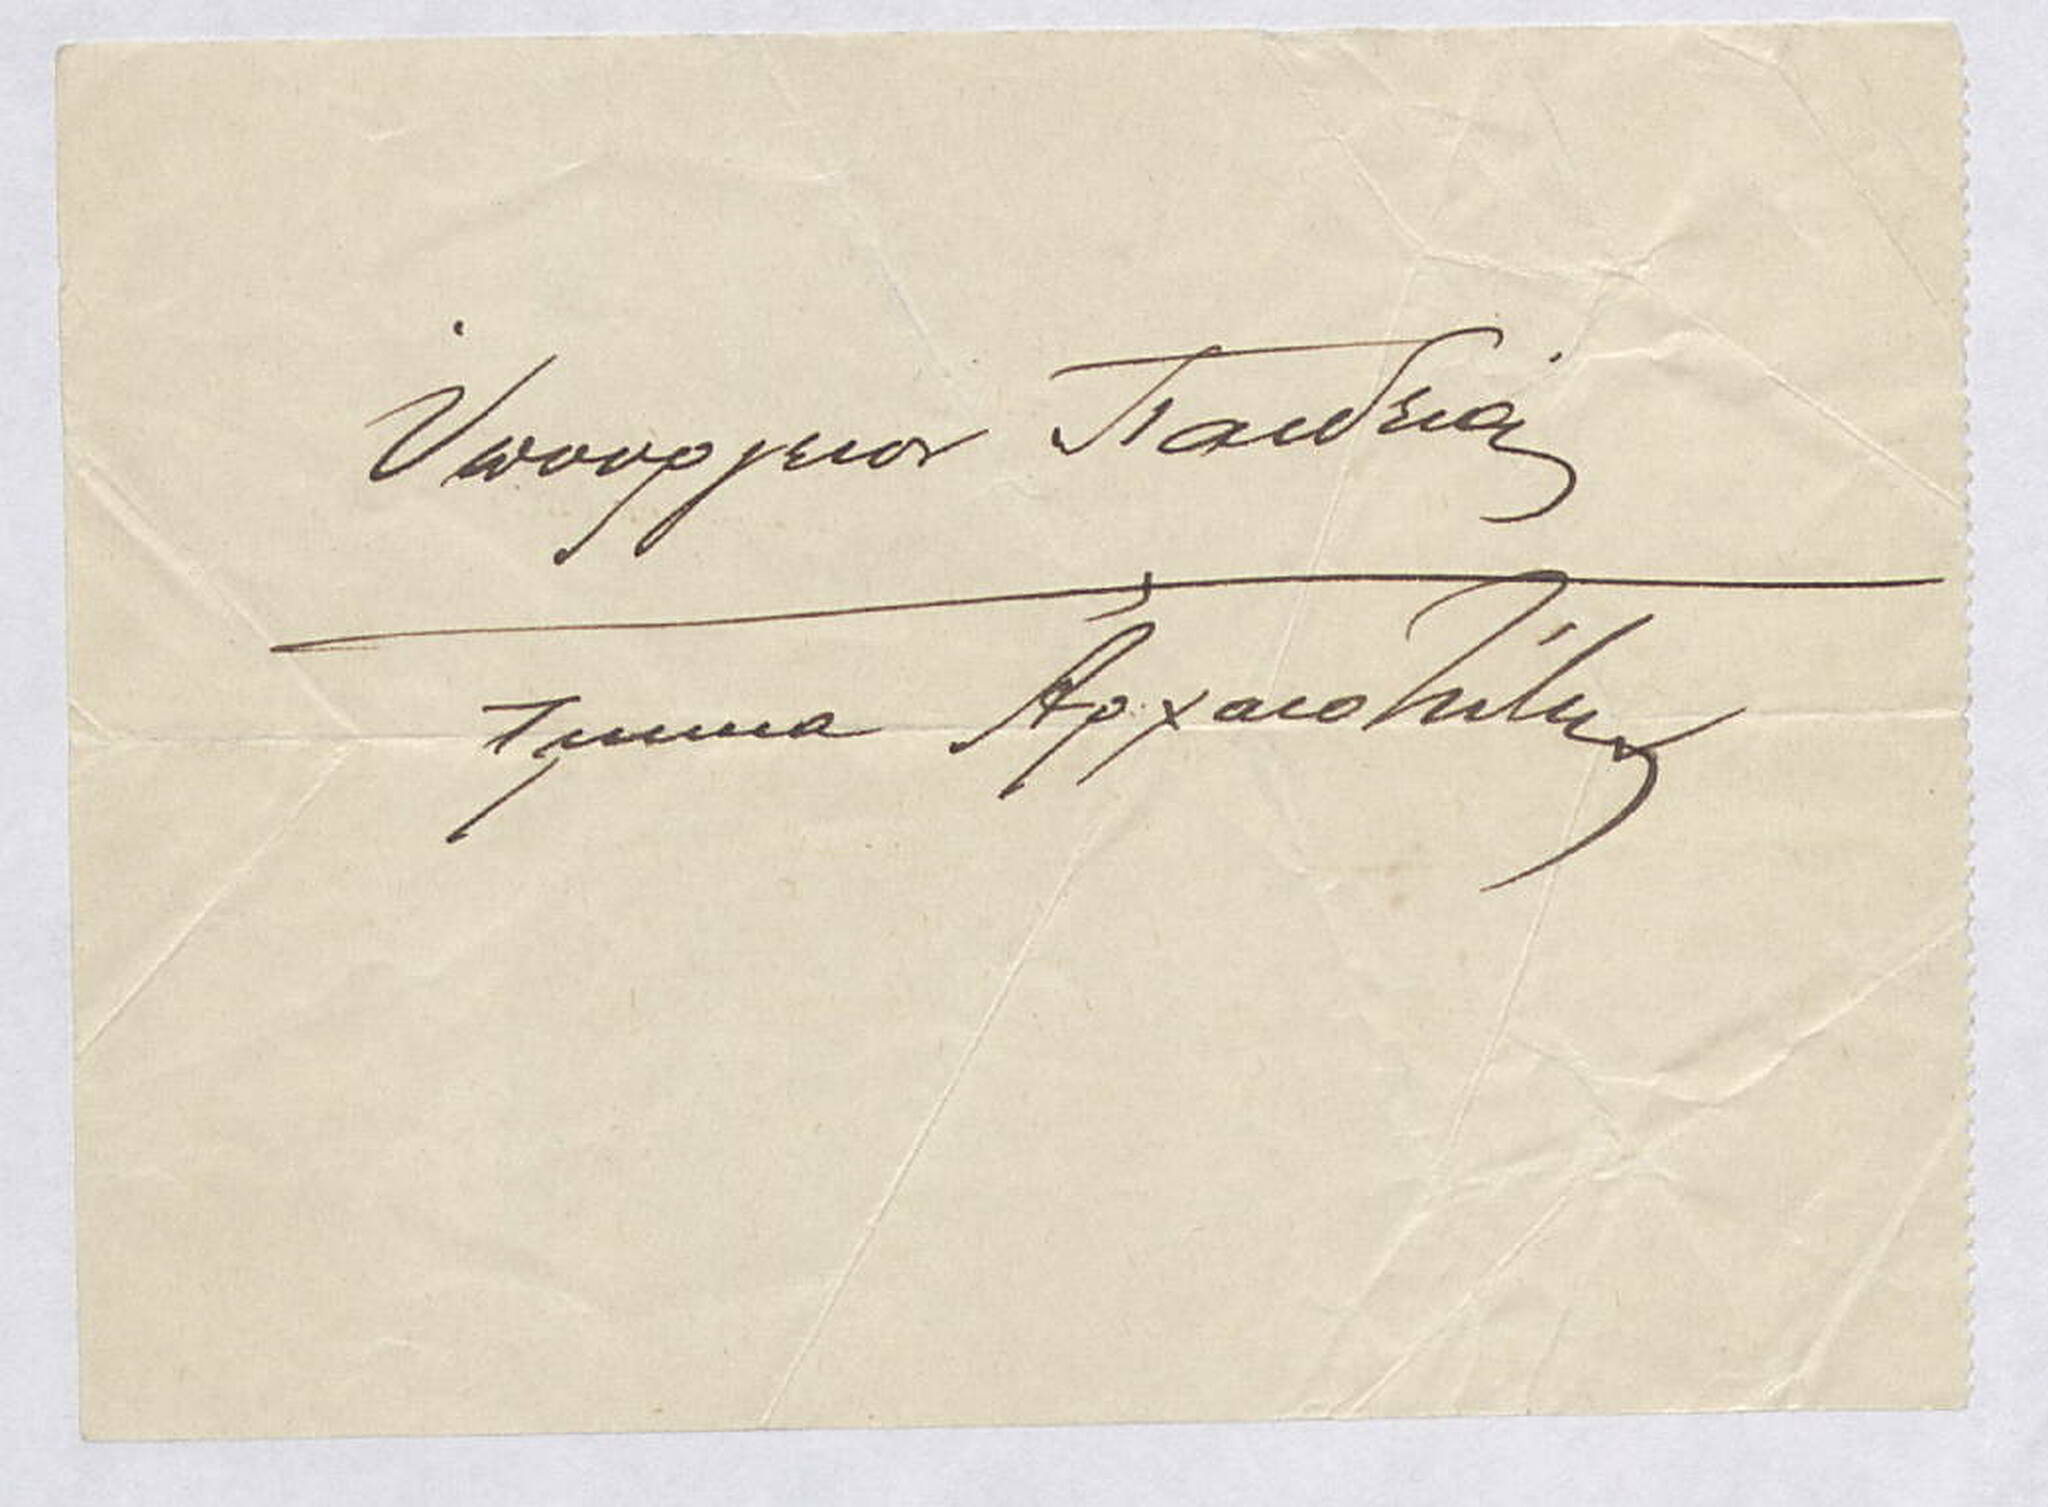 Ὑπουργειον Παιδειας
Τμημα Ἀρχαιοτήτων